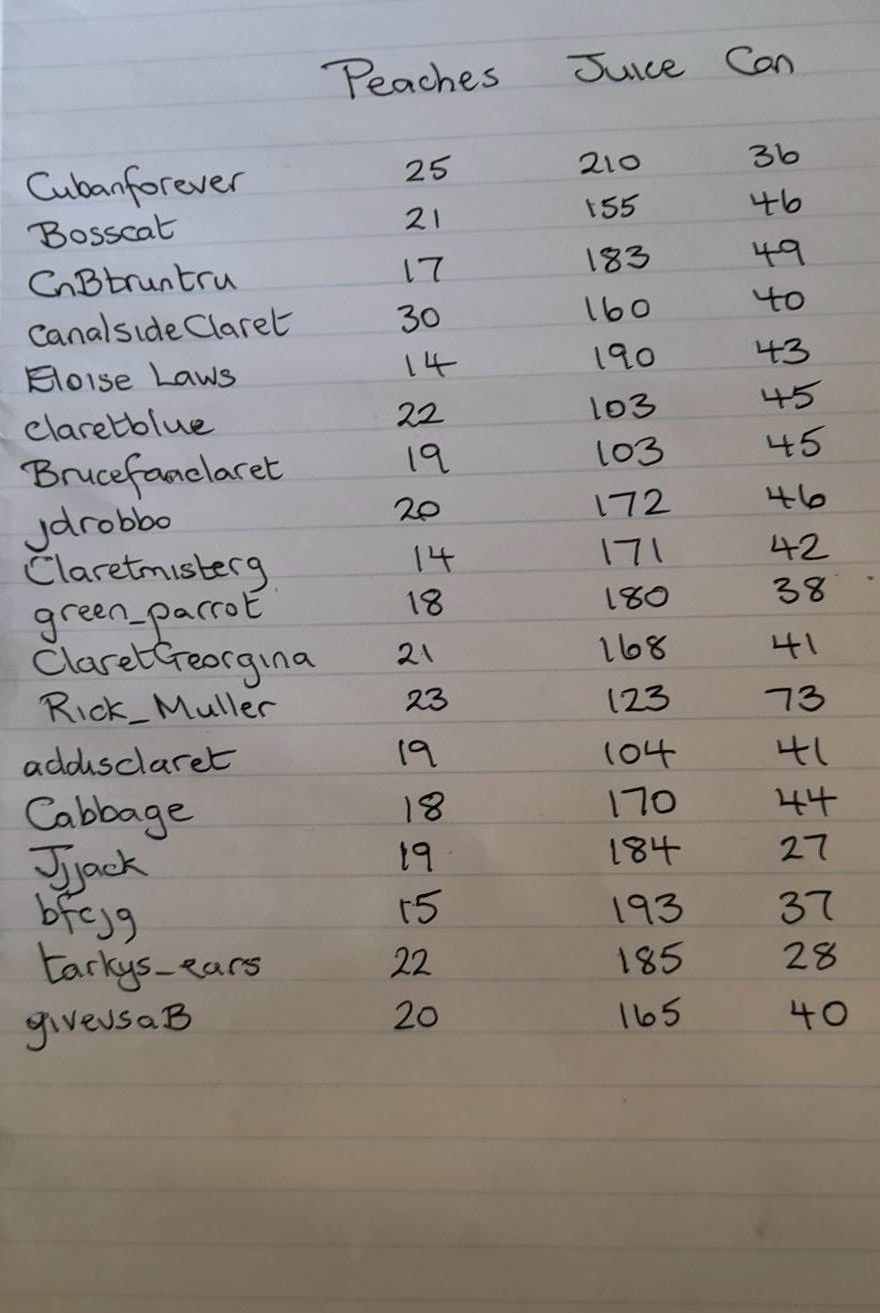 Peaches Juice Can
Cubanforever 25 210 36
Bosscat 21 155 46
CnBtruntru 17 183 49
canalsideClaret 30 160 40
Eloise Laws 14 190 43
claretblue 22 103 45
Brucefanclaret 19 103 45
jdrobbo 20 172 46
Claretmisterg 14 171 42
green_parrot 18 180 38
ClaretGeorgina 21 168 41
Rick_Muller 23 123 73
addisclaret 19 104 41
Cabbage 18 170 44
Jjjack 19 184 27
bfcjg 15 193 37
tarkys_ears 22 185 28
giveusaB 20 165 40